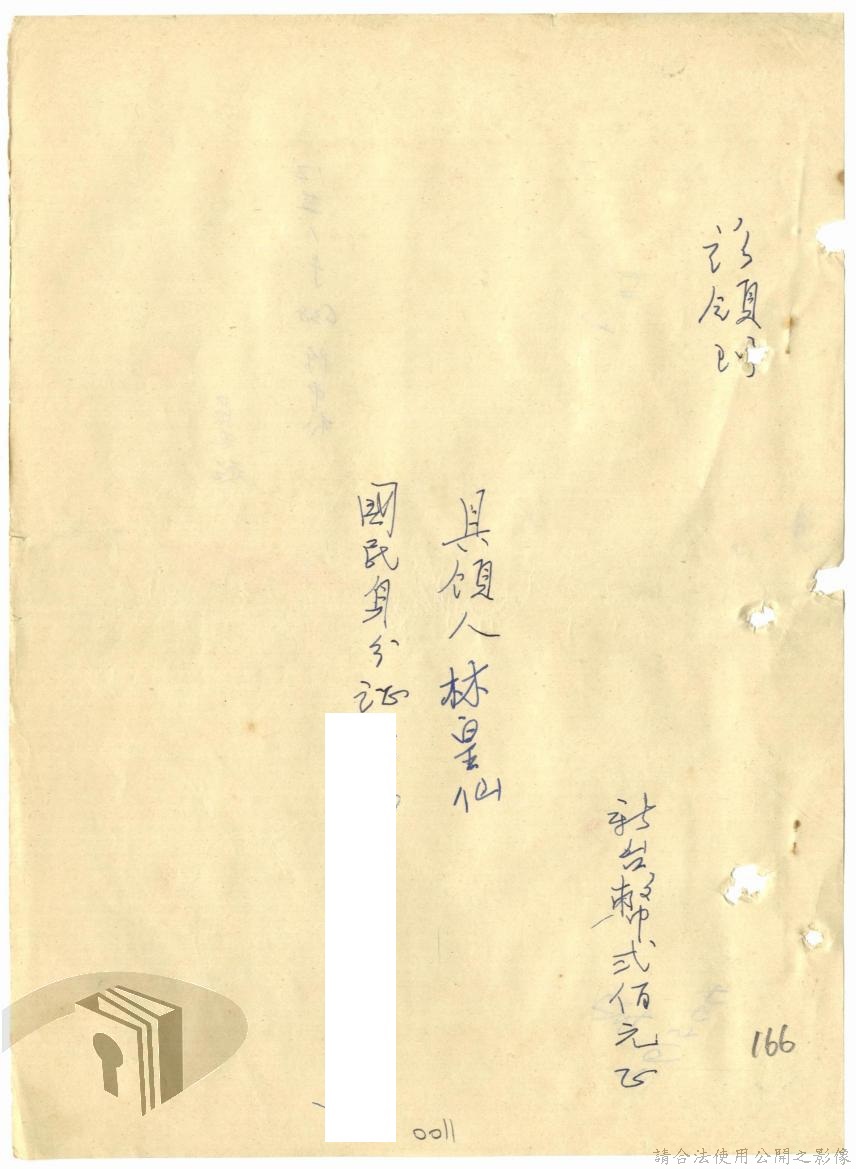 玆領到
新台幣弍佰元正
具領人林星仙
國民身分証
166
0011
請合法使用公開之影像